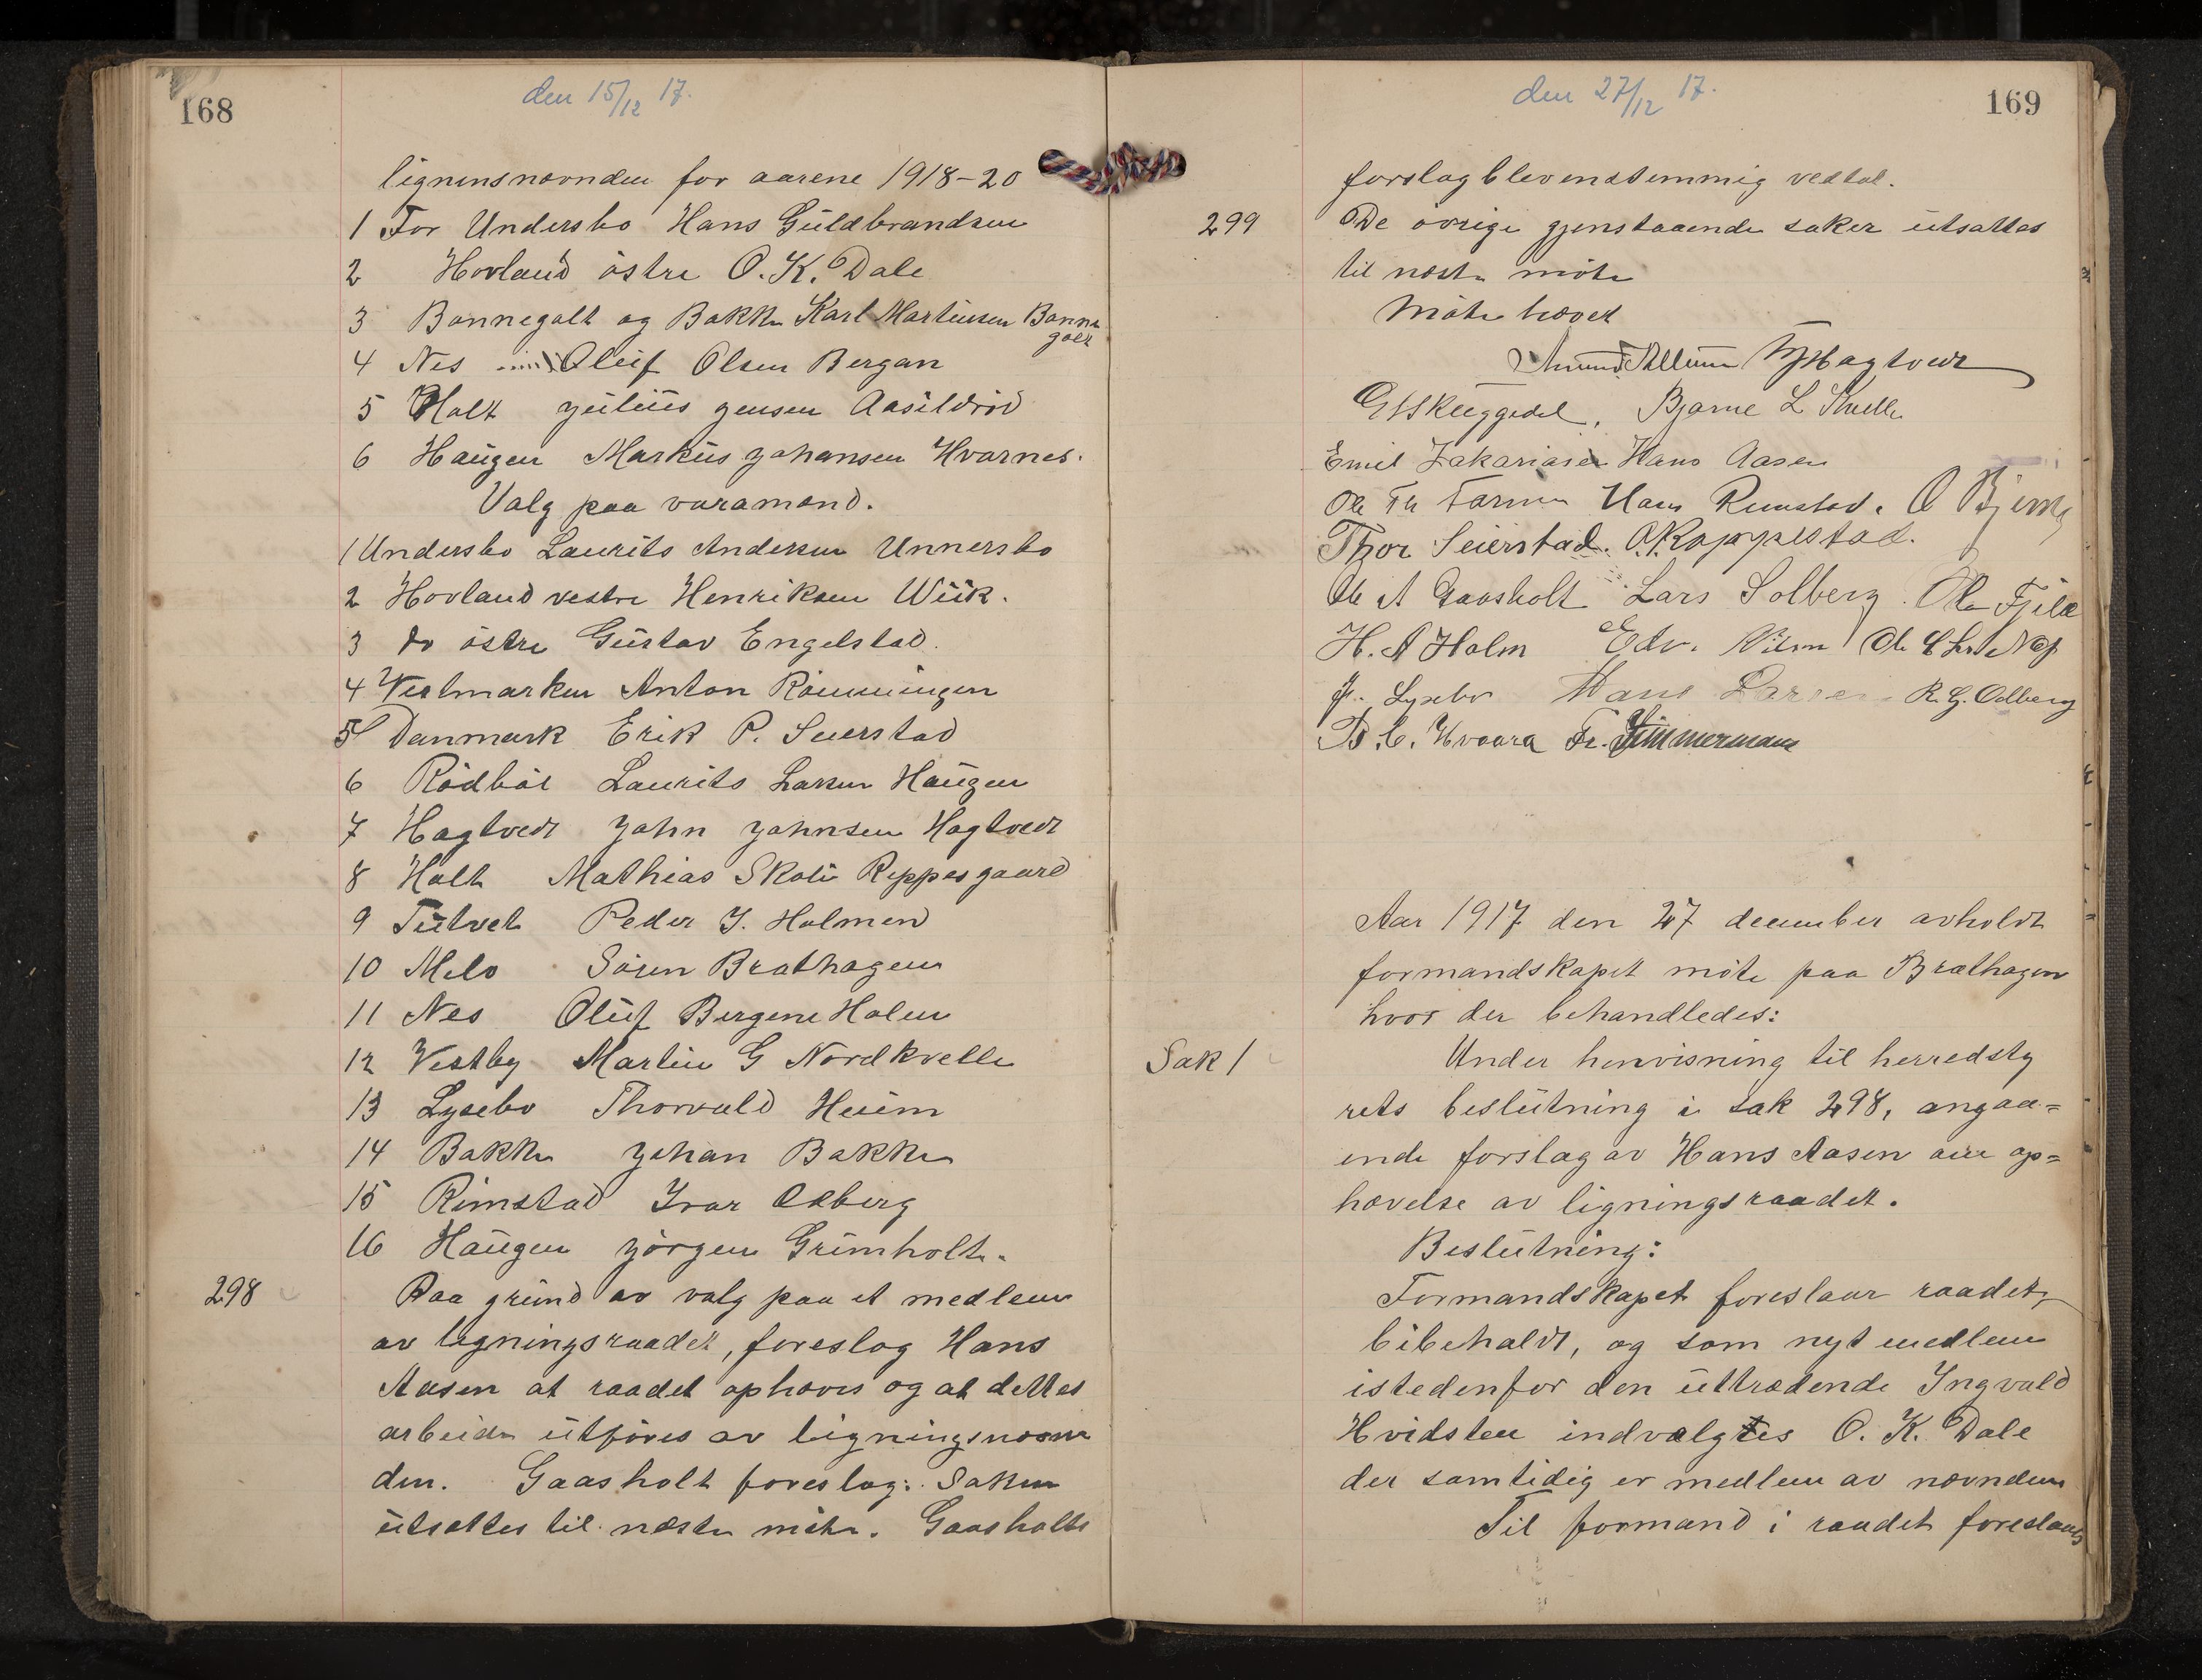 168
den 15/12 17.
ligninsnævnden for aarene 1918-20
1 For Undersbo Hans Guldbrandsen
2 Hovland östre O. K. Dale
3 Bonnegolt og Bakke Karl Martinsen Bonne
golt
4 Nes Oluf Olsen Bergan
5 Holt Julius Jensen Aasildröd
6 Haugen Markus Johansen Hvarnes.
Valg paa varamænd.
1 Undersbo Laurits Andersen Unnersbo
2 Hovland vestre Henriksen Wiik.
3 do östre Gustav Engelstad.
4 Vestmarken Anton Rönningen
5 Danmark Erik P. Seierstad
6 Rödböl Laurits Larsen Haugen
7 Hagtvedt John Johnsen Hagtvedt
8 Holt Mathias Skoli Reppesgaard
9 Tutvet Peder J. Holmen
10 Melo Sören Brathagen
11 Nes Oluf Bergene Holen
12 Vestby Martin G Nordkvelle
13 Lysebo Thorvald Heiem
14 Bakke Johan Bakke
15 Rimstad Ivar Odberg
16 Haugen Jörgen Grimholt.
298 Paa grund av valg paa et medlem
av ligningsraadet, foreslog Hans
Aasen at raadet ophæves og at dettes
arbeide utföres av ligningsnævn
den. Gaasholt foreslog: Saken
utsættes til næste möte. Gaasholts
den 27/12 17.
169
forslag blev enstemmig vedtat.
299 De övrige gjenstaaende saker utsattes
til næste möte
Möte hævet
Amund Allum Hagtvedt
Skuggedal, Bjarne L Kvelle
Emil Zakariasen Hans Aasen
Ole Th Farmen Hans Rimstad. O Bjerke
Thor Seierstad. O. Koppestad.
Ole A Gaasholt Lars Solberg. Ole Fjeld
H. A Holm Edv. Ole Chr Nes
Lysebo Hans Larsen R. G. Odberg
B. C. Hvaara Fr. Zimmermann
Aar 1917 den 27 december avholdt
formandskapet möte paa Brathagen
hvor der behandledes:
Sak 1 Under henvisning til herredsty
rets beslutning i sak 298, angaa=
ende forslag av Hans Aasen om op=
hævelse av ligningsraadet.
Beslutning:
Formandskapet foreslaar raadet,
bibeholdt, og som nyt medlem
istedenfor den uttrædende Ingvald
Hvidsten indvalgtes O. K. Dale
der samtidig er medlem av nævnden
Til formand i raadet foreslaaes